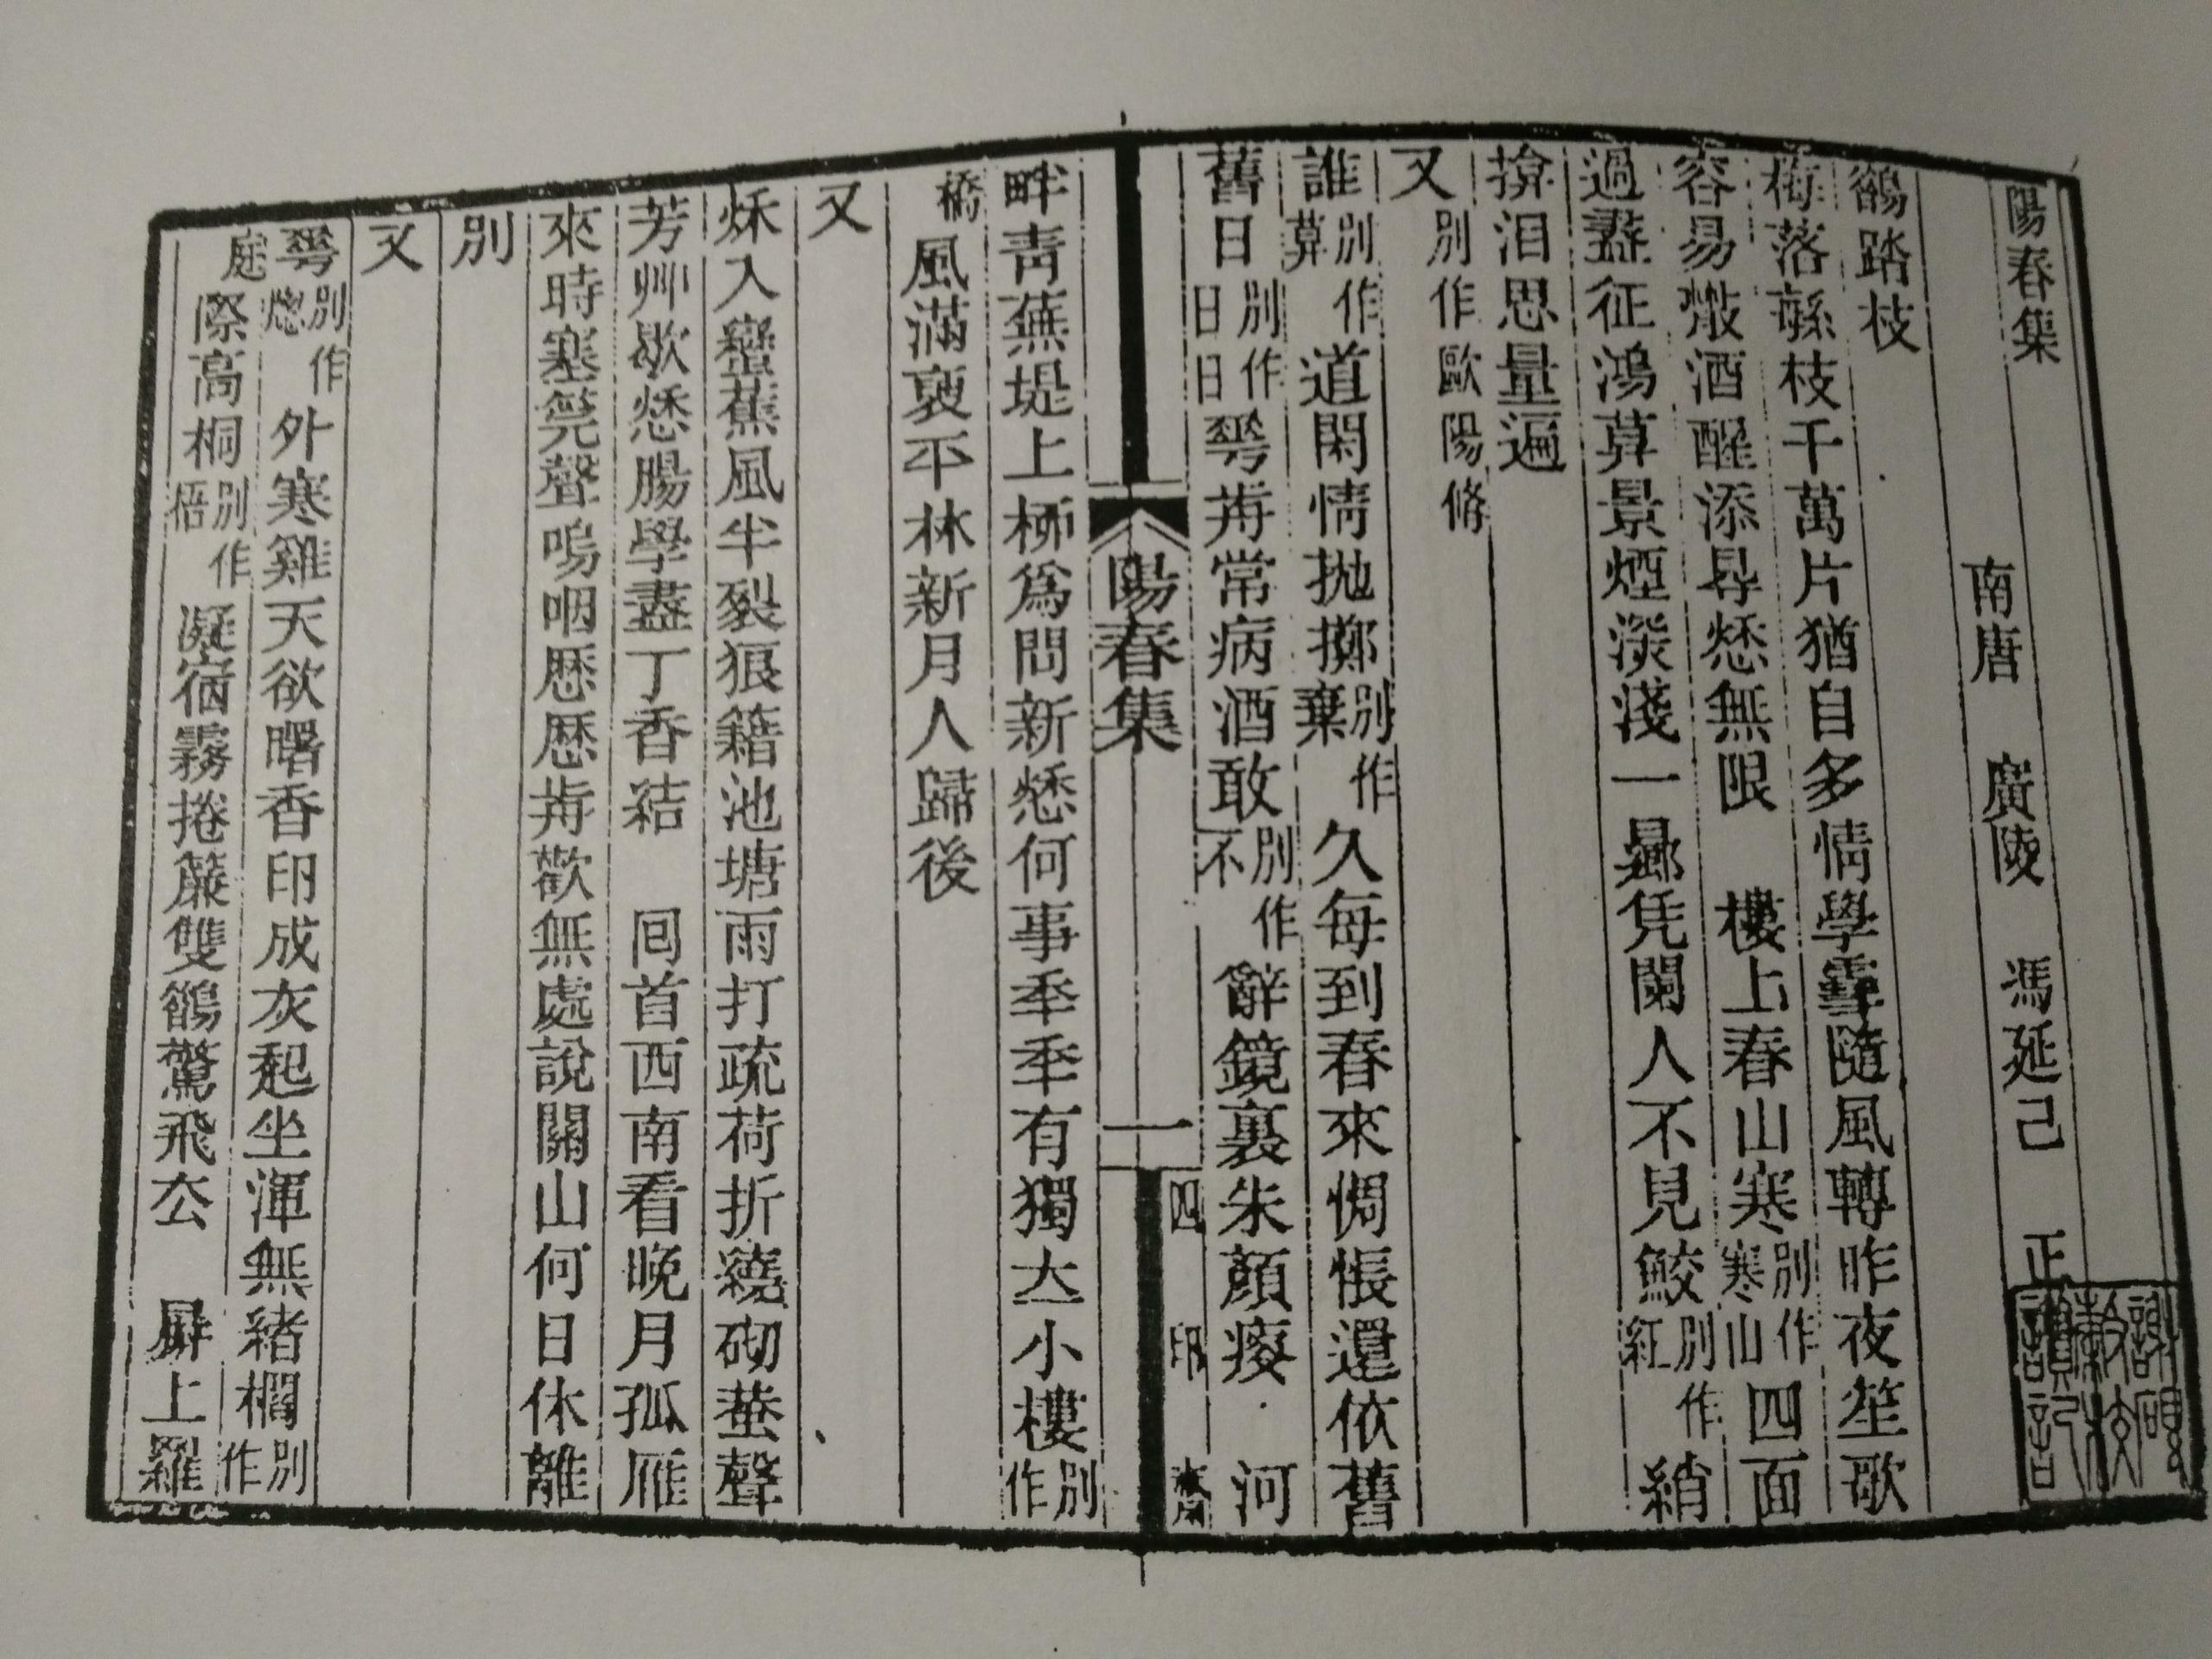 陽春集
南唐　廣陵　馮延己　正中
鵲踏枝
梅落繁枝千萬片猶自多情學雪隨風轉昨夜笙歌
容易散酒醒添得愁無限　樓上春山寒別作寒山四面
過盡征鴻暮景煙深淺一晌凭闌人不見鮫別作紅綃
揜泪思量遍
又別作歐陽脩
誰別作莫道閑情抛擲別作棄久每到春來惆悵還依舊
舊日別作日日花前常病酒敢別作不辭鏡裏朱顏瘦　河
陽春集
一
四印齋
畔青蕪堤上柳爲問新愁何事年年有獨立小樓別作
橋風滿袖平林新月人歸後
又
秋入蠻蕉風半裂狼籍池塘雨打疏荷折繞砌蛩聲
芳艸歇愁腸學盡丁香結　回首西南看晚月孤雁
來時塞筦聲嗚咽歷歷前歡無處說關山何日休離
別
又
花別作窗外寒雞天欲曙香印成灰起坐渾無緒櫩別作
庭際高桐別作梧凝宿霧捲簾雙鵲驚飛去　屏上羅